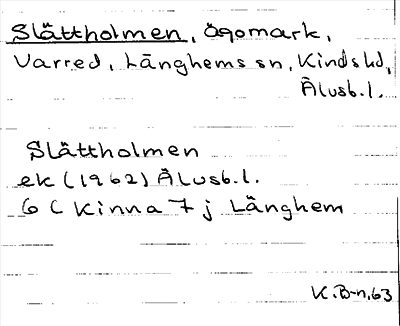 Slättholmen, ägomark,
Varred, Länghems sn, Kinds hd,
Älvsb. l.
Slättholmen
ek (1962) Älvsb. l.
6 C Kinna 7 j Länghem
K. B-n, 63